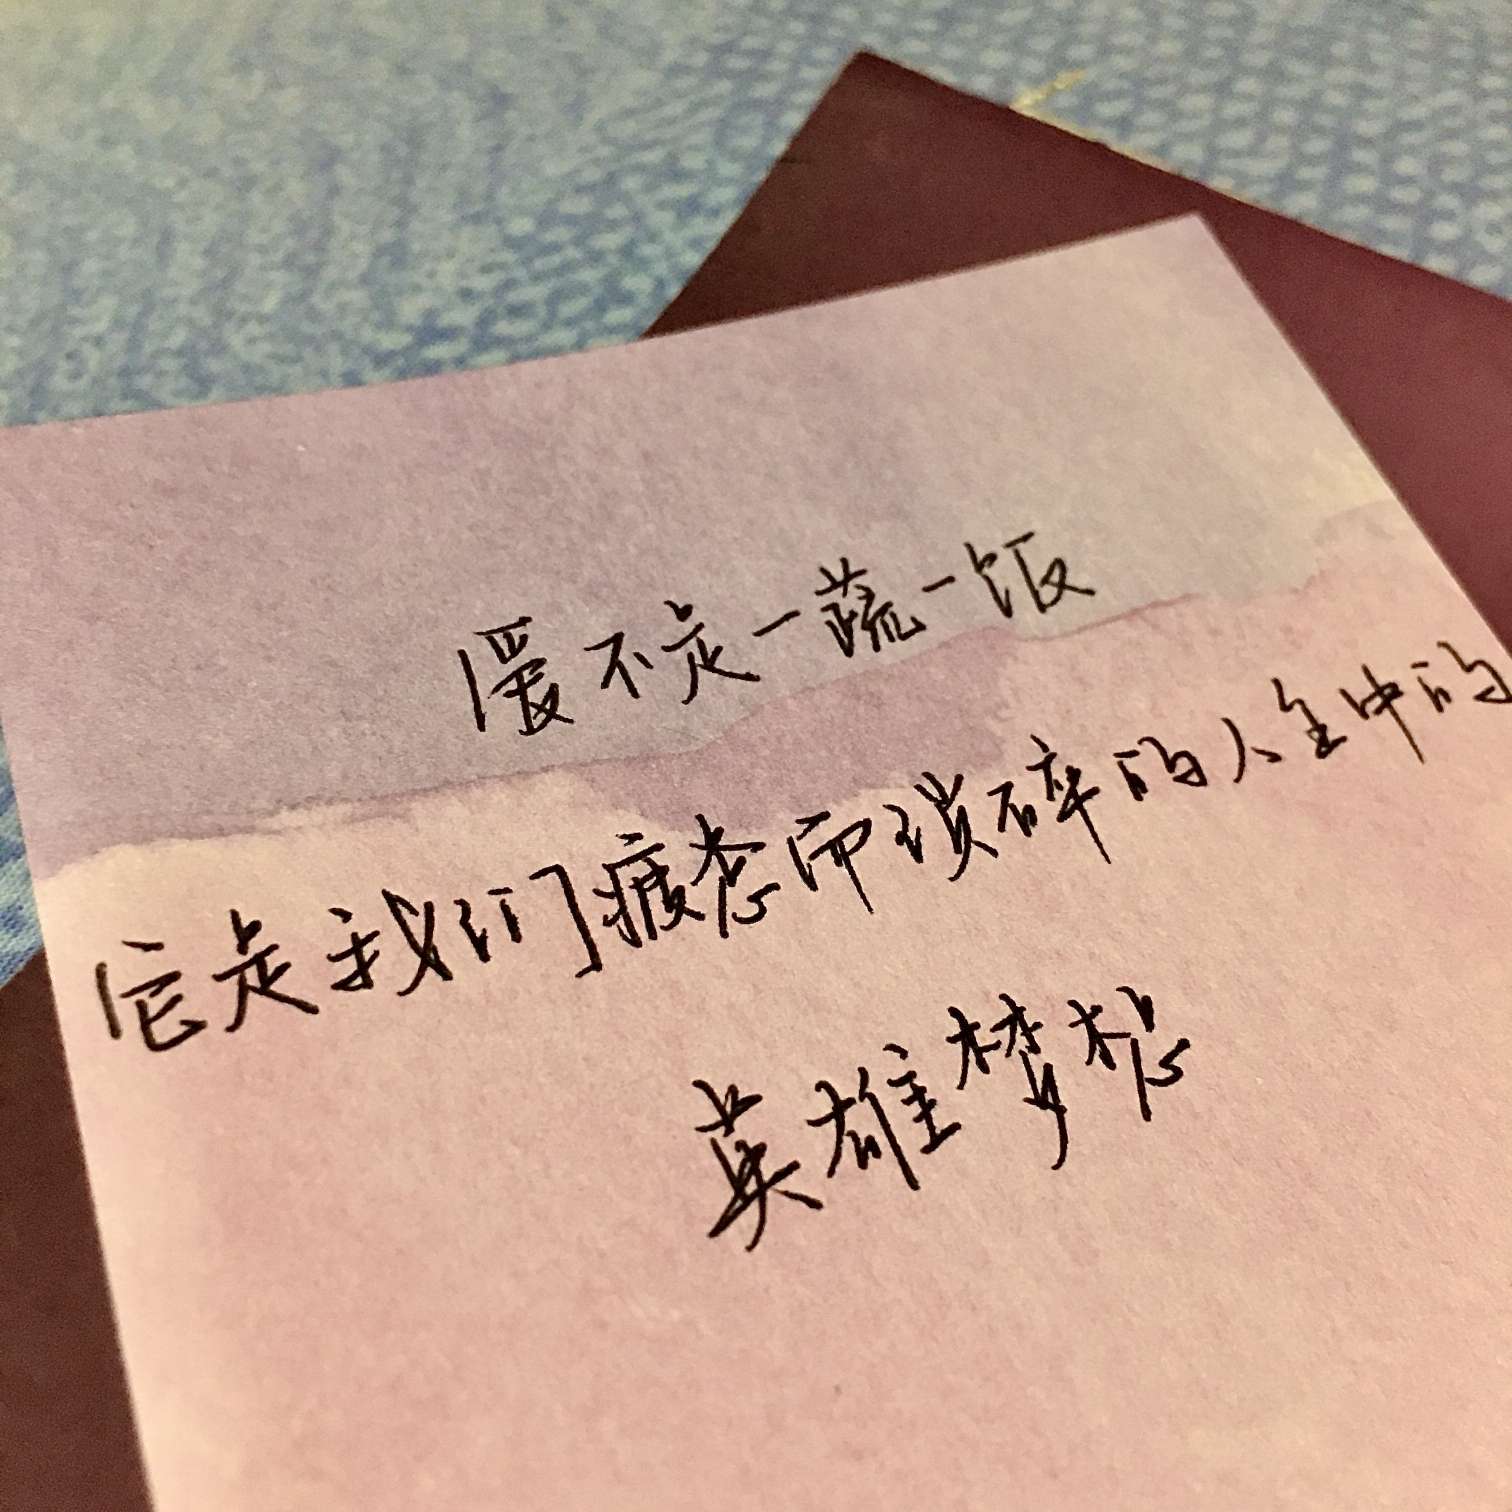 爱不是一蔬一饭
它是我们疲惫而琐碎的人生中的
英雄梦想